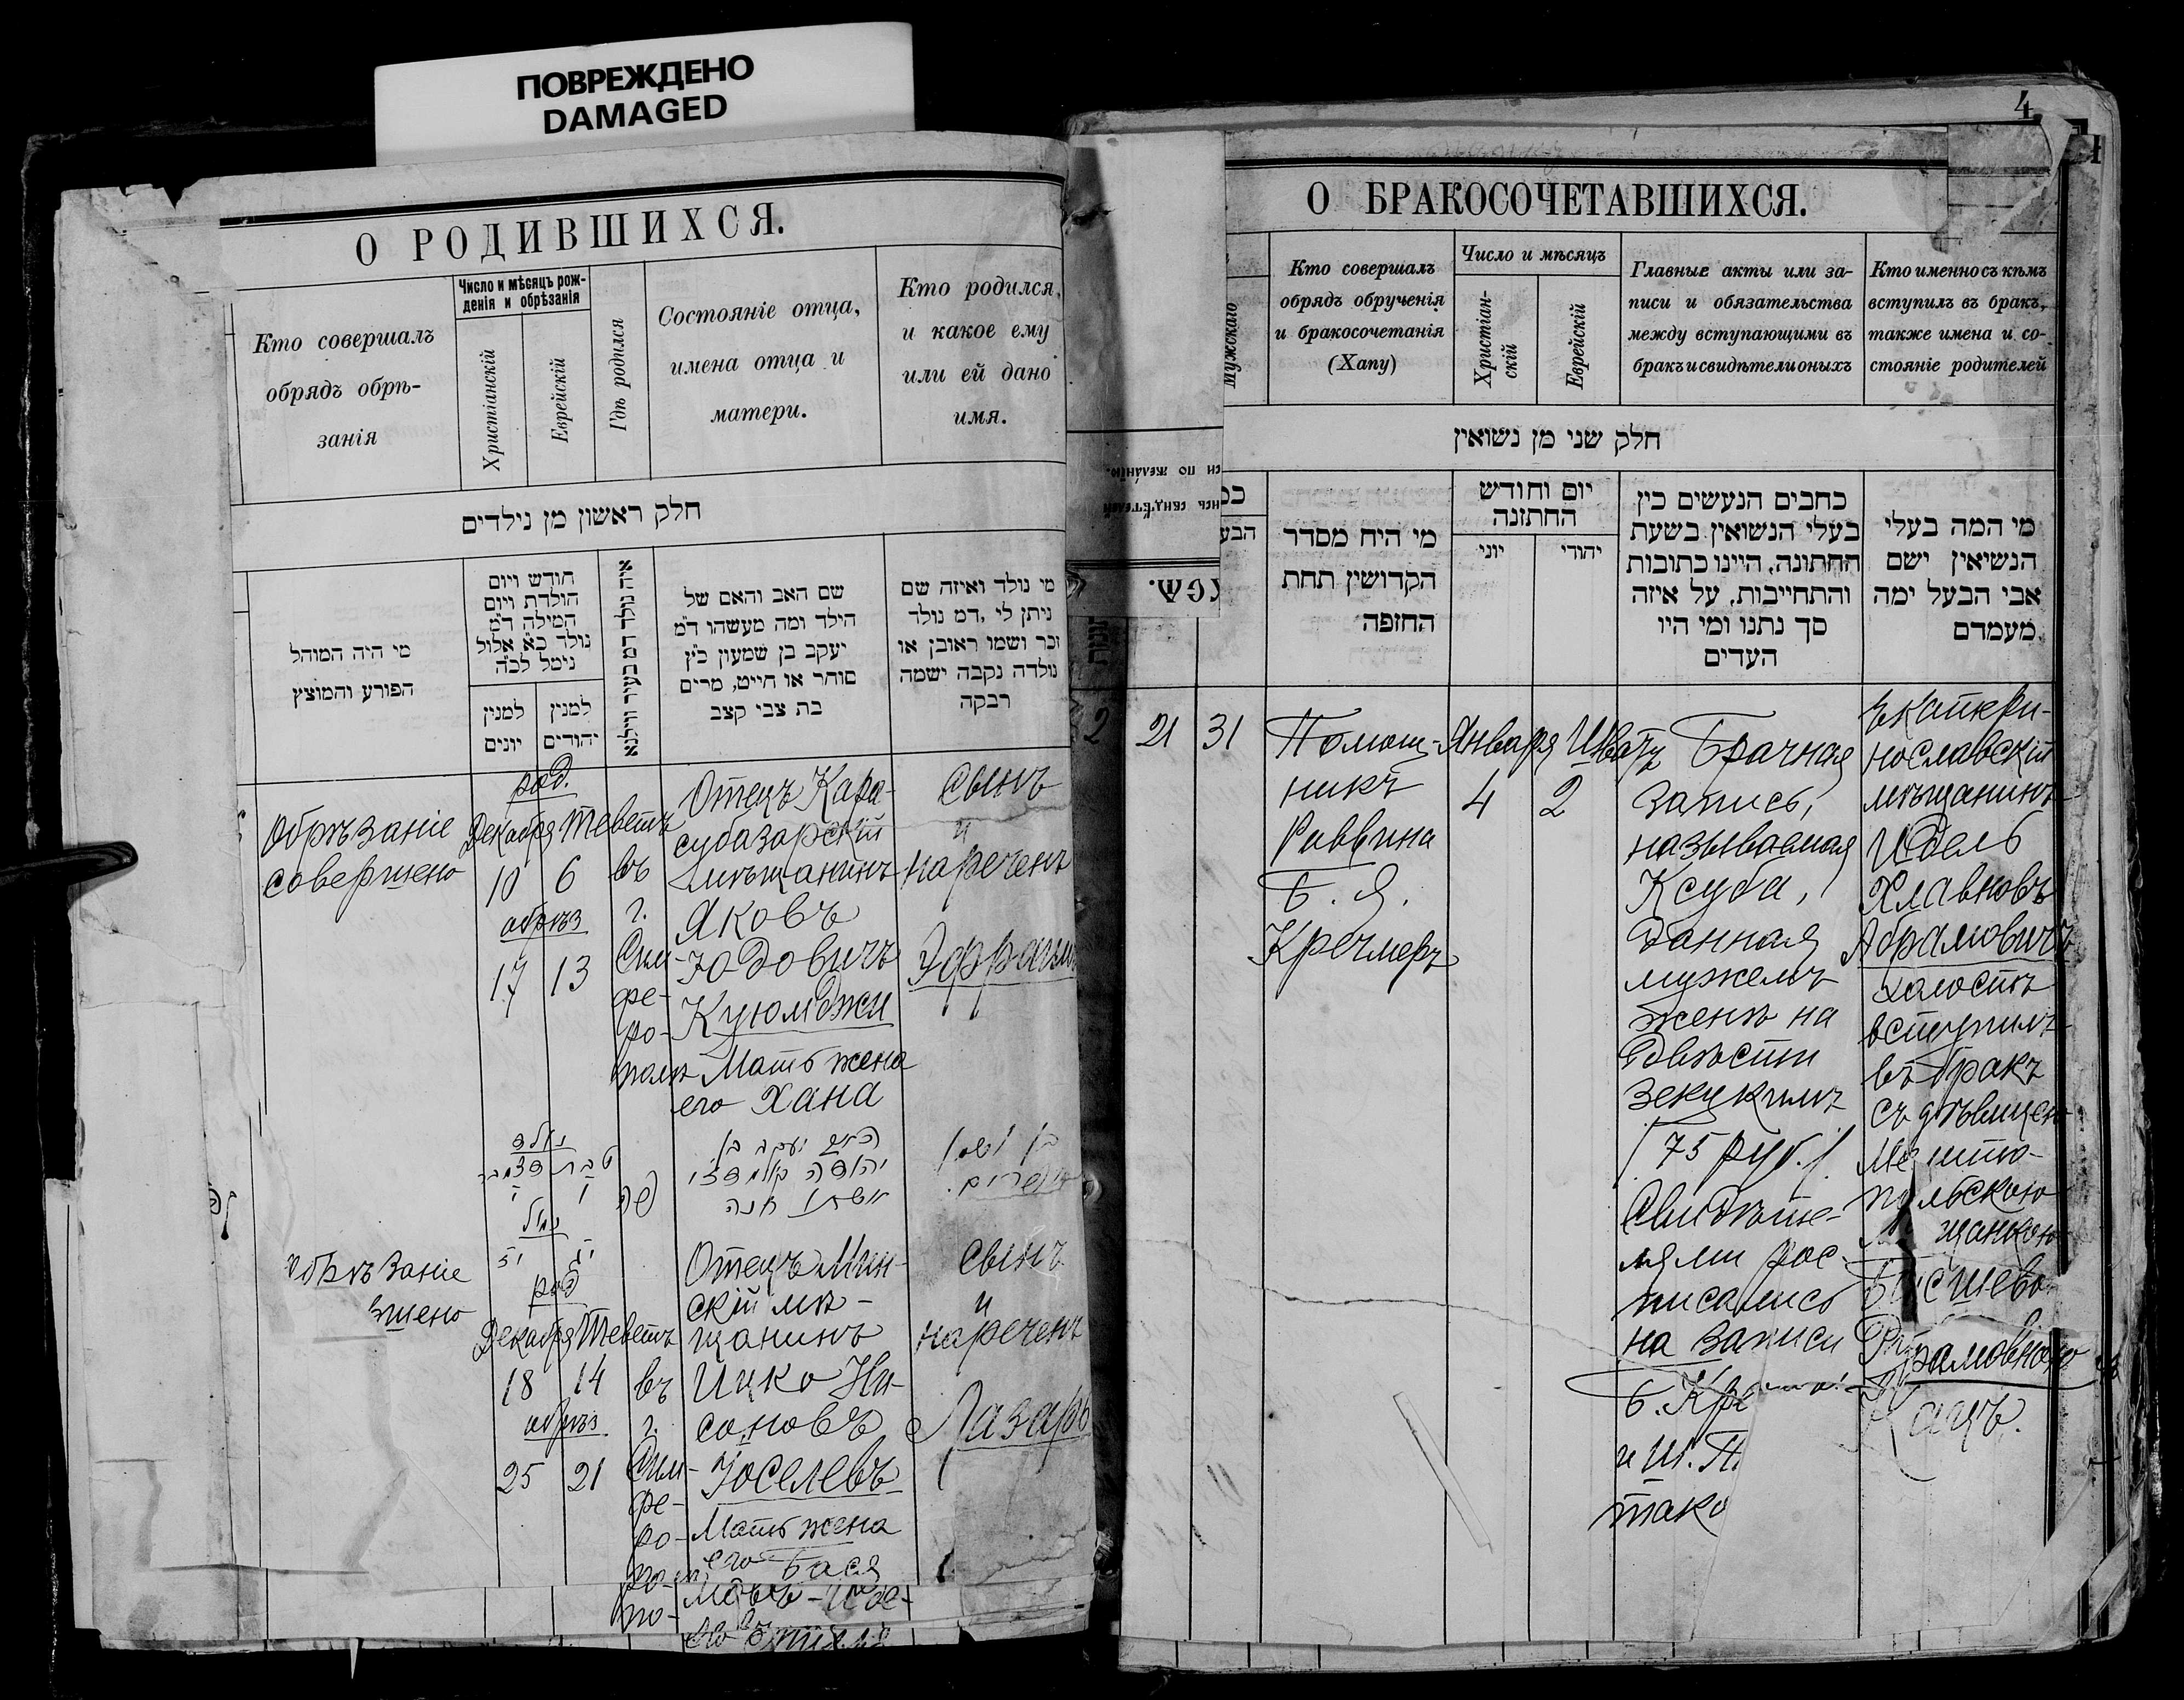 ПОВРЕЖДЕНО
DAMAGED
О РОДИВШИХСЯ.
Кто совершалъ
обрядъ обрѣ-
занія
Число и мѣсяцъ рож-
денія и обрѣзанія
Христіанскій
Еврейскій
Гдѣ родился
Состояніе отца,
имена отца и
матери.
Кто родился,
и какое ему
или ей дано
имя.
חלק ראשון מן נילדים
מי היה המוהל
הפורע והמוצץ
חודש ויום
הולדת ויום
המילה ד״מ
נולד כ״א אלול
נימל לכ״ה
למנין
יונים
למנין
יהודים
איה נולד דמ בעיר ווילנא
שם האב והאם של
הילד ומה מעשהו ד״מ
יעקב בן שמעון כ״ץ
סוחר או חייט, מרים
בת צבי קצב
מי נולד ואיזה שם
ניתן לי, דמ נולד
זכר ושמו ראובן או
נולדה נקבה ישמה
רבקה
Обрѣзаніе
совершено
род.
Декабря Теветъ
10 6
обрѣз
17 13
въ
г.
Сим-
фе-
ро-
полѣ
Отецъ Кара-
субазарскій
мѣщанинъ
Яковъ
Юдовичъ
Куюмджи
Мать жена
его Хана
Сынъ
и
нареченъ
Эфраимъ
נולד
טבת דצמבר
ו י
נמול
יעקב בן
יהודה
אשתו חנה
בן ושמו
אפרים
Обрѣзаніе
шено
род
Декабря Теветъ
18 14
обрѣз
25 21
въ
г.
Сим-
фе-
ро-
по-
Отецъ Мин-
скій мѣ-
щанинъ
Ицко Ни-
соновъ
Іоселевъ
Мать жена
его Бася
Сынъ
и
нареченъ
Лазарь
4
О БРАКОСОЧЕТАВШИХСЯ.
Мужскаго
Кто совершалъ
обрядъ обрученія
и бракосочетанія
(Хапу)
Число и мѣсяцъ
Христіан-
скій
Еврейскій
Главные акты или за-
писи и обязательства
между вступающими въ
бракъ и свидѣтели оныхъ
Кто именно съ кѣмъ
вступилъ въ бракъ,
также имена и со-
стояніе родителей
חלק שני מן נשואין
מי היח מסדר
הקדושין תחת
החופה
יום וחודש
החתונה
יוני
יהודי
כתבים הנעשים בין
בעלי הנשואין בשעת
החתונה, היינו כתובות
והתחייבות, על איזה
סך נתנו ומי היו
העדים
מי המה בעלי
הנשיאין ישם
אבי הבעל ימה
מעמדם
2 21 31
Помощ-
никъ
Раввина
Б. Я.
Кречмеръ
Января Шватъ
4 2
Брачная
запись,
называемая
Ксуба,
данная
мужемъ
женѣ на
двѣсти
зекукимъ
/ 75 руб. /
Свидѣте-
лями рос-
писались
на записи
и Ш. П.
Екатери-
нославскій
мѣщанинъ
Идель
Хлавновъ
Абрамовичъ
холостъ
вступилъ
въ бракъ
съ дѣвицею
Мелито-
польскою
мѣщанкою
Басшево
Абрамовною
Кацъ.